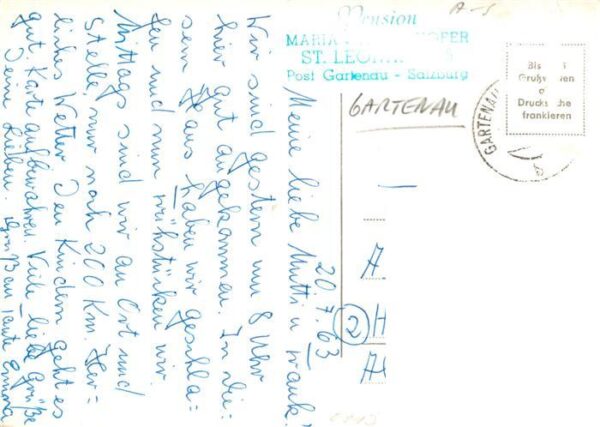 Pension
MARIA HOFER
ST. LEON
Post Gartenau - Salzburg
A-5
GARTENAU
Bis
Grußs en
Drucks che
frankieren
GARTENAU
20.7.63
Meine liebe Mutti u. Frank!
Wir sind gestern um 8 Uhr
hier gut angekommen. In die=
sem Haus haben wir geschla=
fen und nun frühstücken wir.
Mittags sind wir an Ort und
Stelle nur noch 200 Km. Herr=
liches Wetter. Den Kindern geht es
gut. Karte aufbewahren. Viele liebe Grüße
Deine Lieben. Grüß an Tante Emma
A
2 H
A